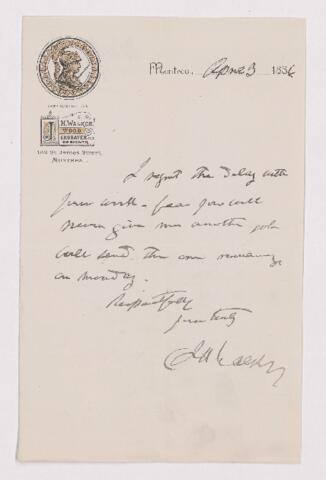 Montreal, April 3 1886
J. H. WALKER
WOOD
ENGRAVER
132 St. James Street,
MONTREAL.
I regret the delay with
your work - fear you will
never give me another job
will send the one remaining
on Monday.
Respectfully
yours truly
J H Walker